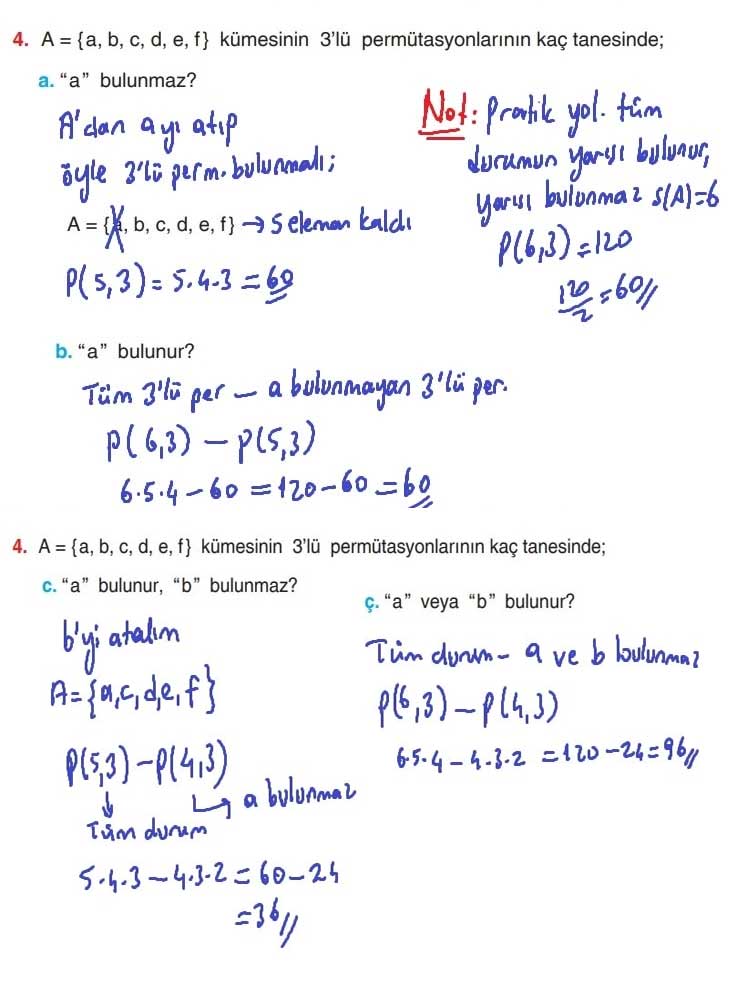 4. A = {a, b, c, d, e, f} kümesinin 3'lü permütasyonlarının kaç tanesinde;
a. “a” bulunmaz?
A'dan ayı atıp
öyle 3'lü perm. bulunmalı;
A = {a, b, c, d, e, f} → 5 eleman kaldı
P(5,3) = 5.4.3 = 60
Not: Pratik yol. tüm
durumun yarısı bulunur,
yarısı bulunmaz s(A)=6
P(6,3) = 120
120/2 = 60//
b. “a” bulunur?
Tüm 3'lü per – a bulunmayan 3'lü per.
P(6,3) – P(5,3)
6.5.4 – 60 = 120 – 60 = 60
4. A = {a, b, c, d, e, f} kümesinin 3'lü permütasyonlarının kaç tanesinde;
c. “a” bulunur, “b” bulunmaz?
b'yi atalım
A={a,c,d,e,f}
P(5,3) – P(4,3)
a bulunmaz
Tüm durum
5.4.3 – 4.3.2 = 60 – 24
= 36//
ç. “a” veya “b” bulunur?
Tüm durum – a ve b bulunmaz
P(6,3) – P(4,3)
6.5.4 – 4.3.2 = 120 – 24 = 96//